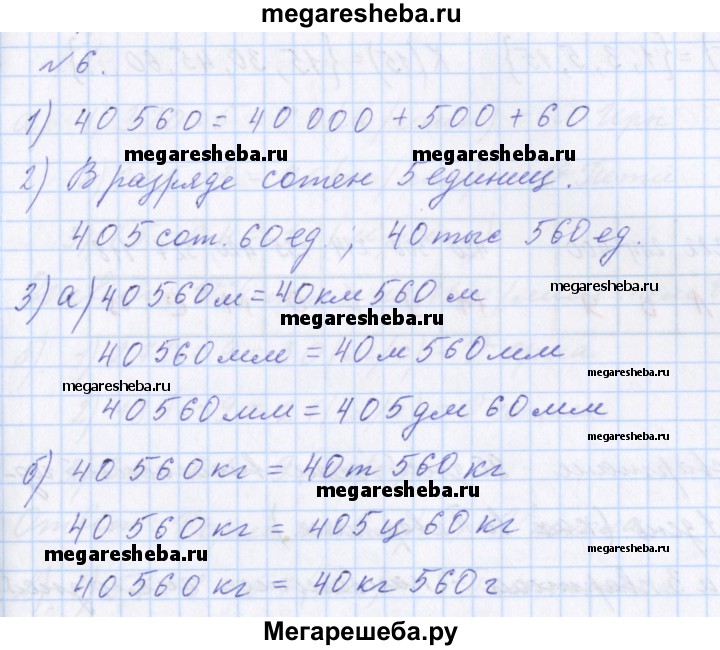 megaresheba.ru
№6.
1) 40 560 = 40 000 + 500 + 60
megaresheba.ru megaresheba.ru
2) В разряде сотен 5 единиц.
405 сот. 60 ед ; 40 тыс 560 ед.
3) а) 40 560 м = 40 км 560 м
megaresheba.ru
40 560 мм = 40 м 560 мм
megaresheba.ru megaresheba.ru
40 560 мм = 405 дм 60 мм
megaresheba.ru
б) 40 560 кг = 40 т 560 кг
megaresheba.ru
40 560 кг = 405 ц 60 кг
megaresheba.ru megaresheba.ru
40 560 кг = 40 кг 560 г
Мегарешеба.ру